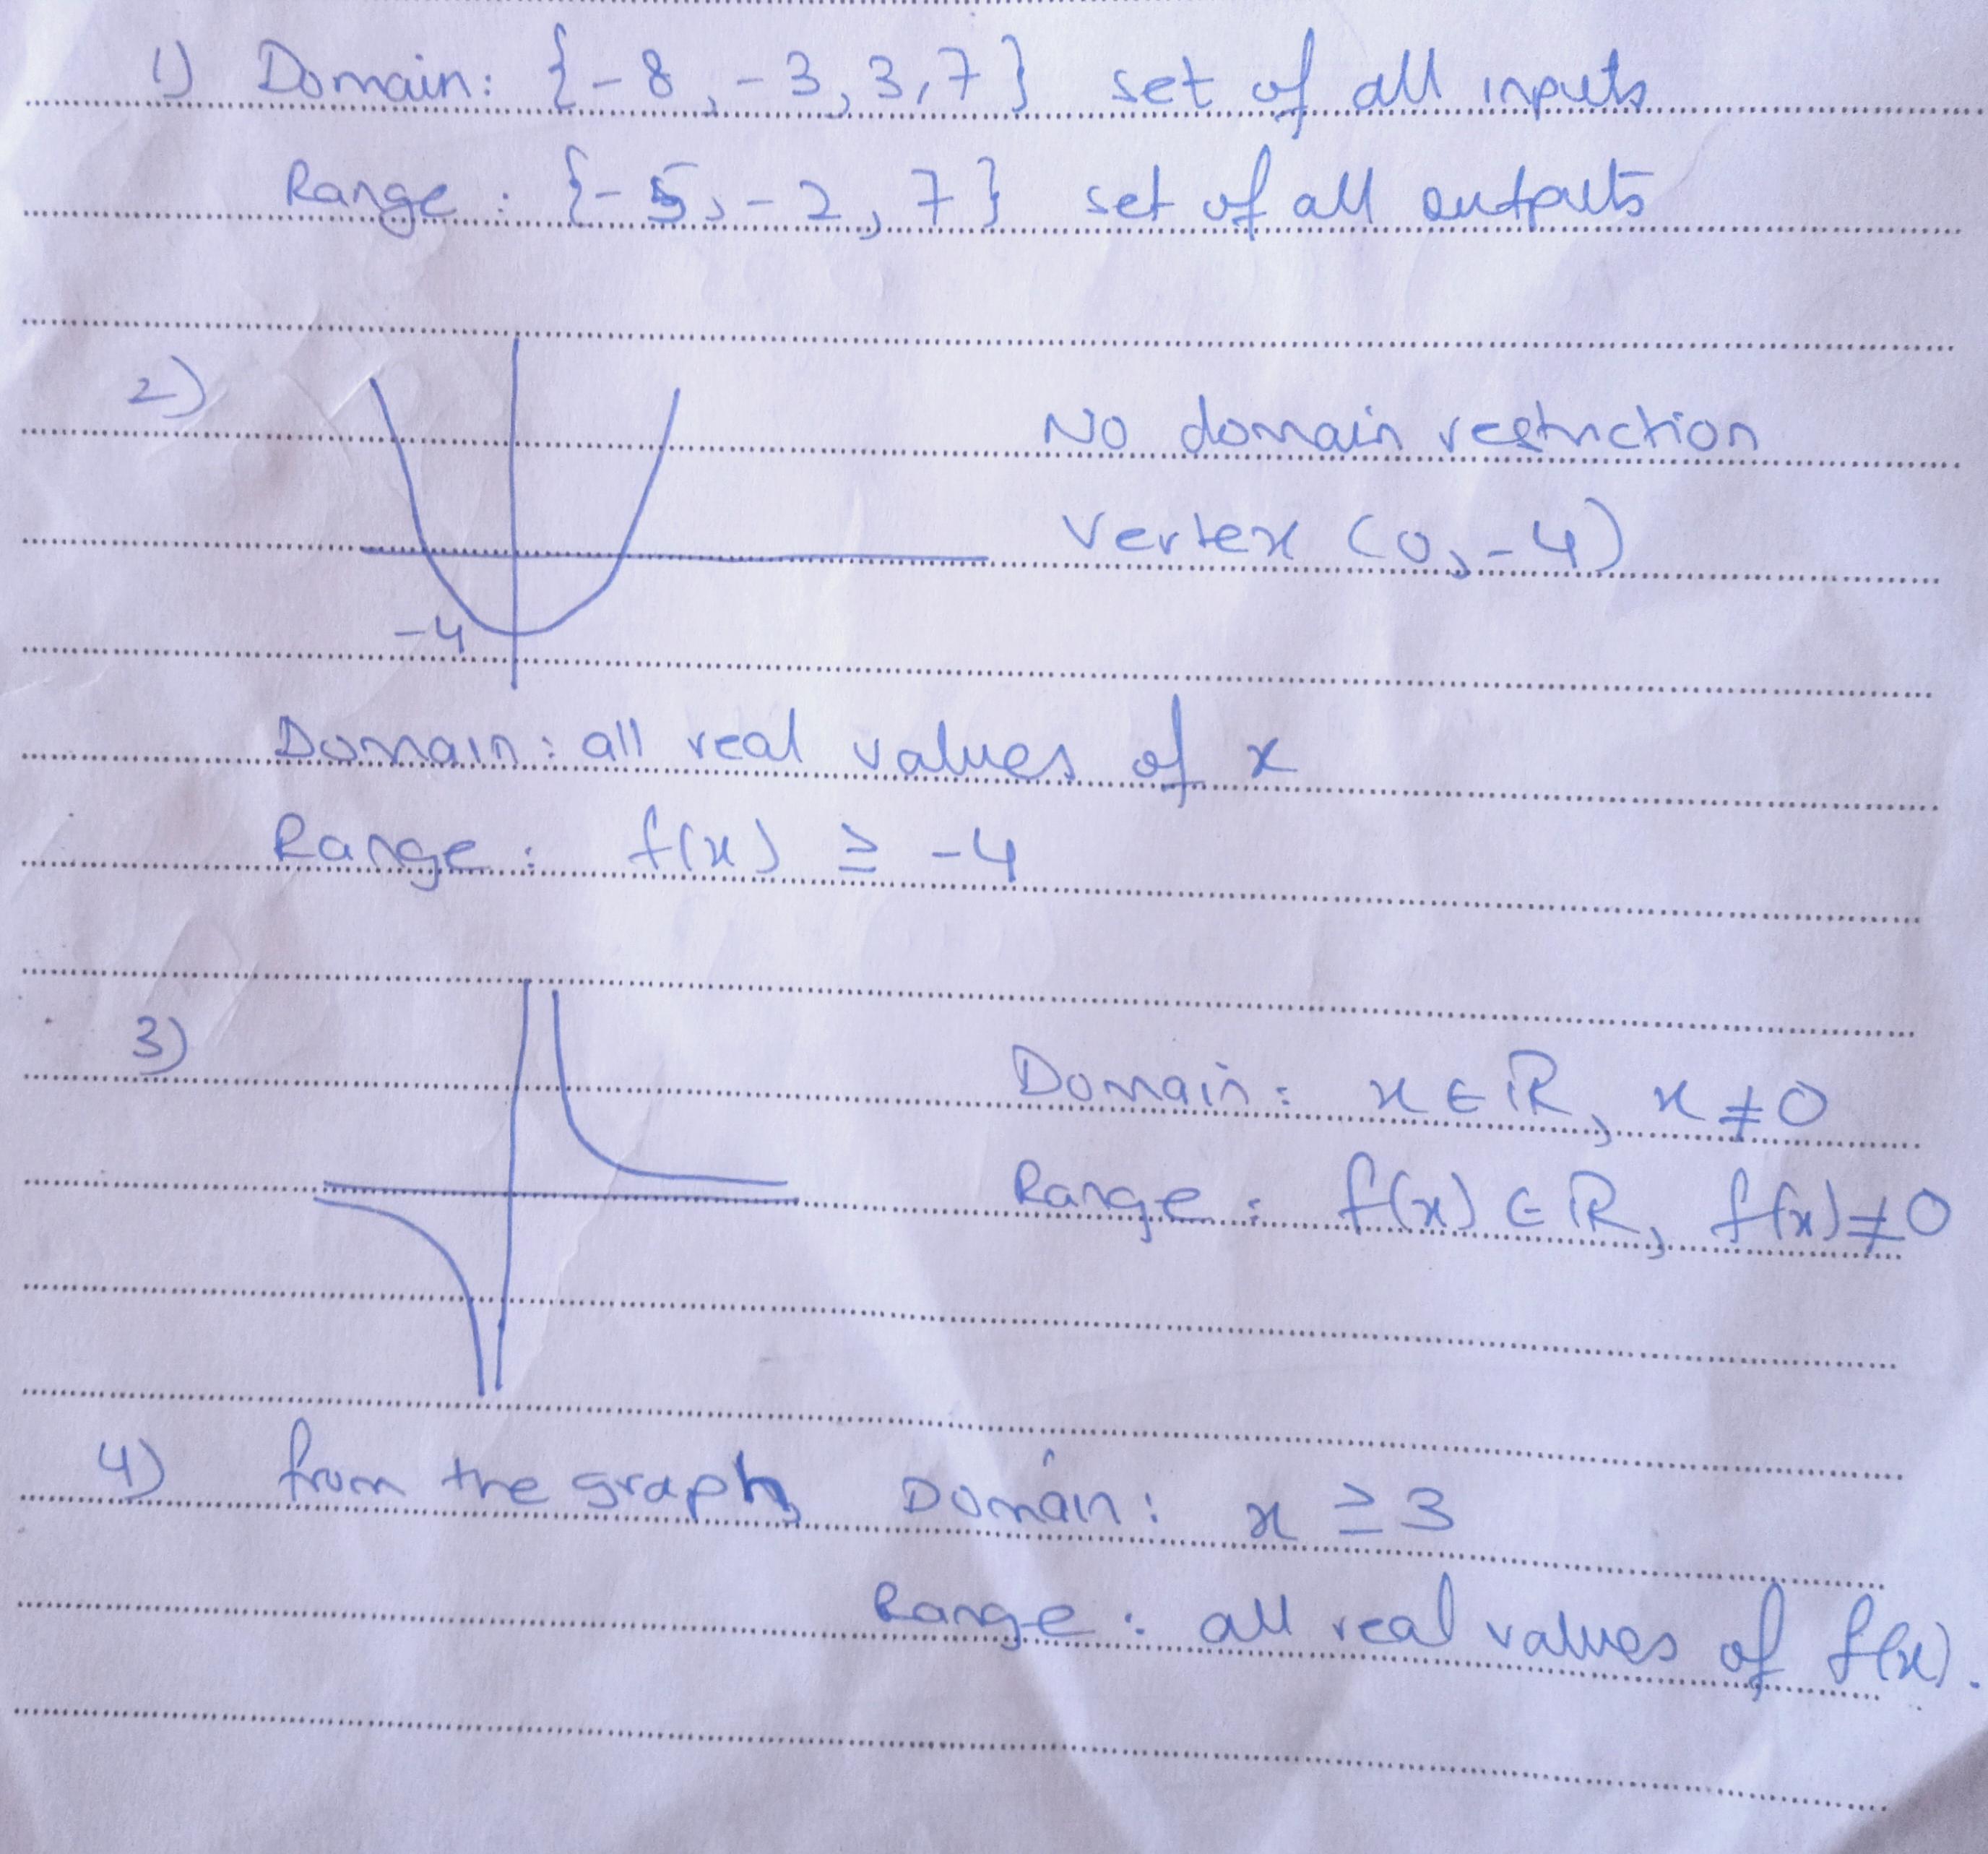 1) Domain: {-8, -3, 3, 7} set of all inputs
Range: {-5, -2, 7} set of all outputs
2)
No domain restriction
Vertex (0, -4)
-4
Domain: all real values of x
Range: f(x) ≥ -4
3)
Domain: x ∈ ℝ, x ≠ 0
Range: f(x) ∈ ℝ, f(x) ≠ 0
4) from the graph, Domain: x ≥ 3
Range: all real values of f(x).